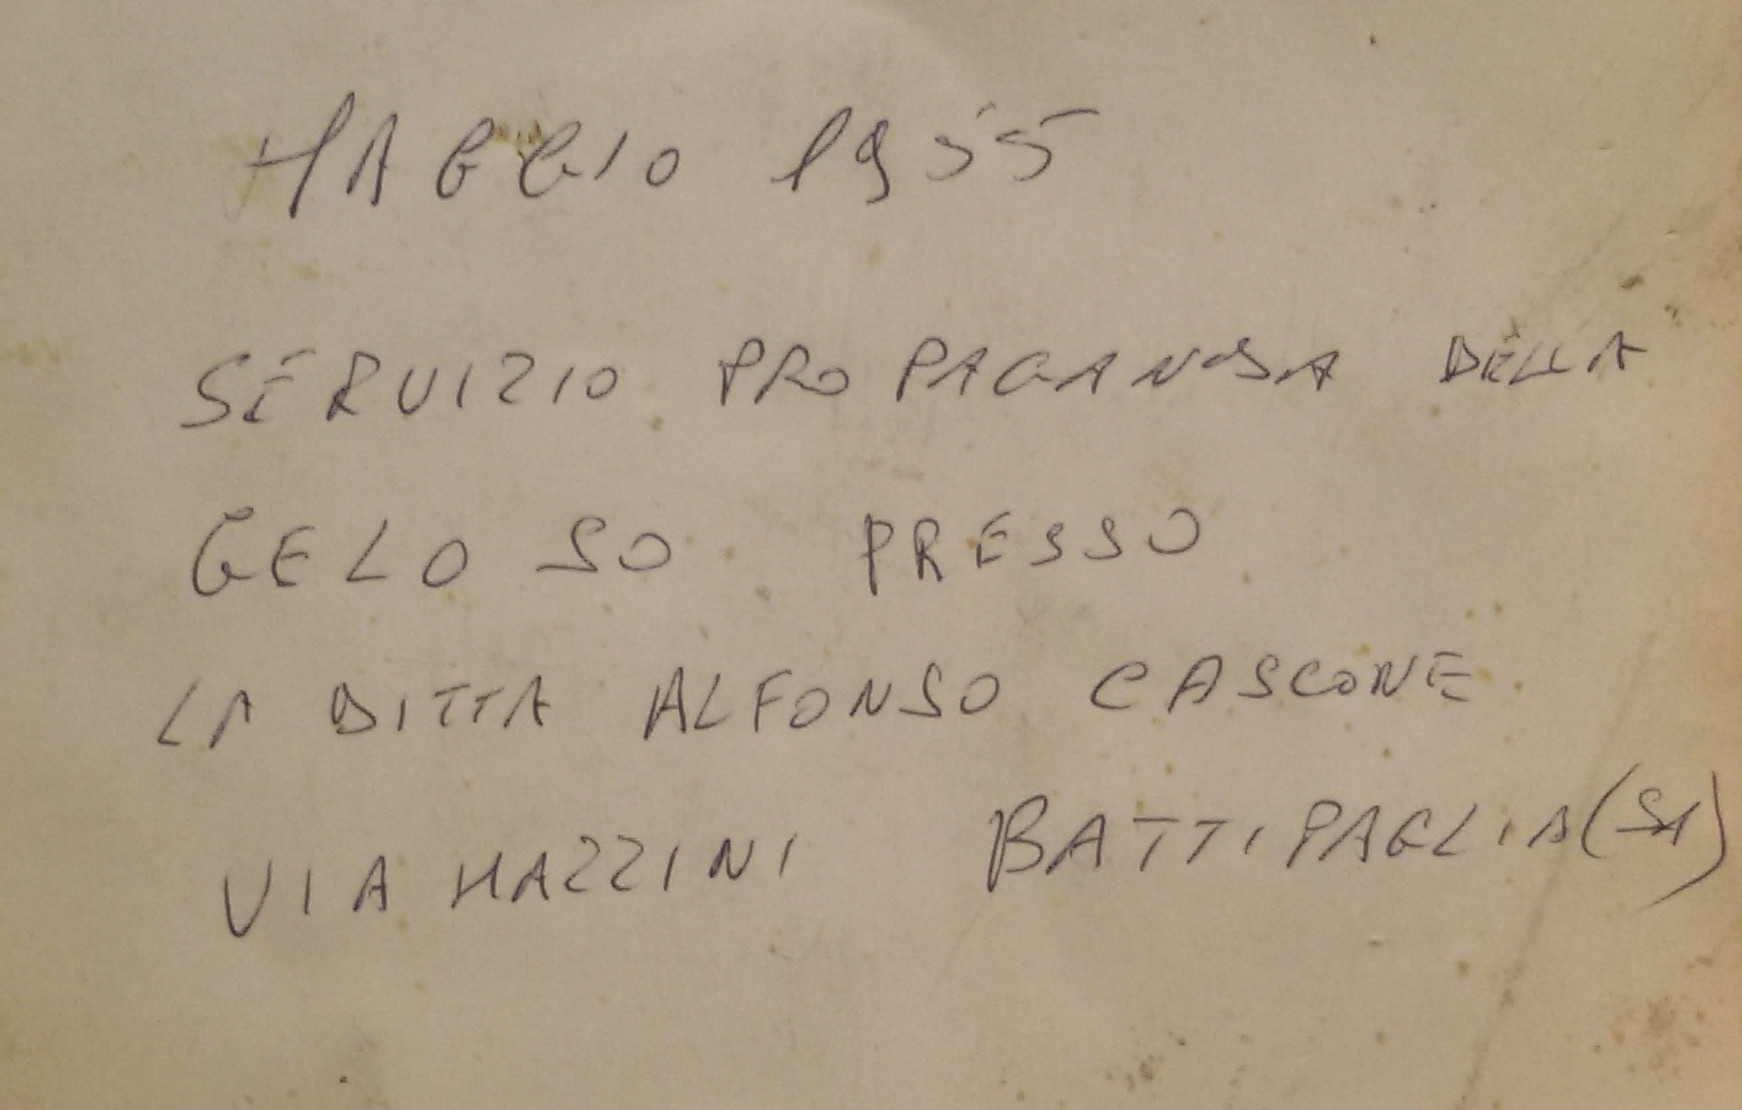 MAGGIO 1955
SERVIZIO PROPAGANDA DELLA
GELOSO PRESSO
LA DITTA ALFONSO CASCONE
VIA MAZZINI BATTIPAGLIA (SA)